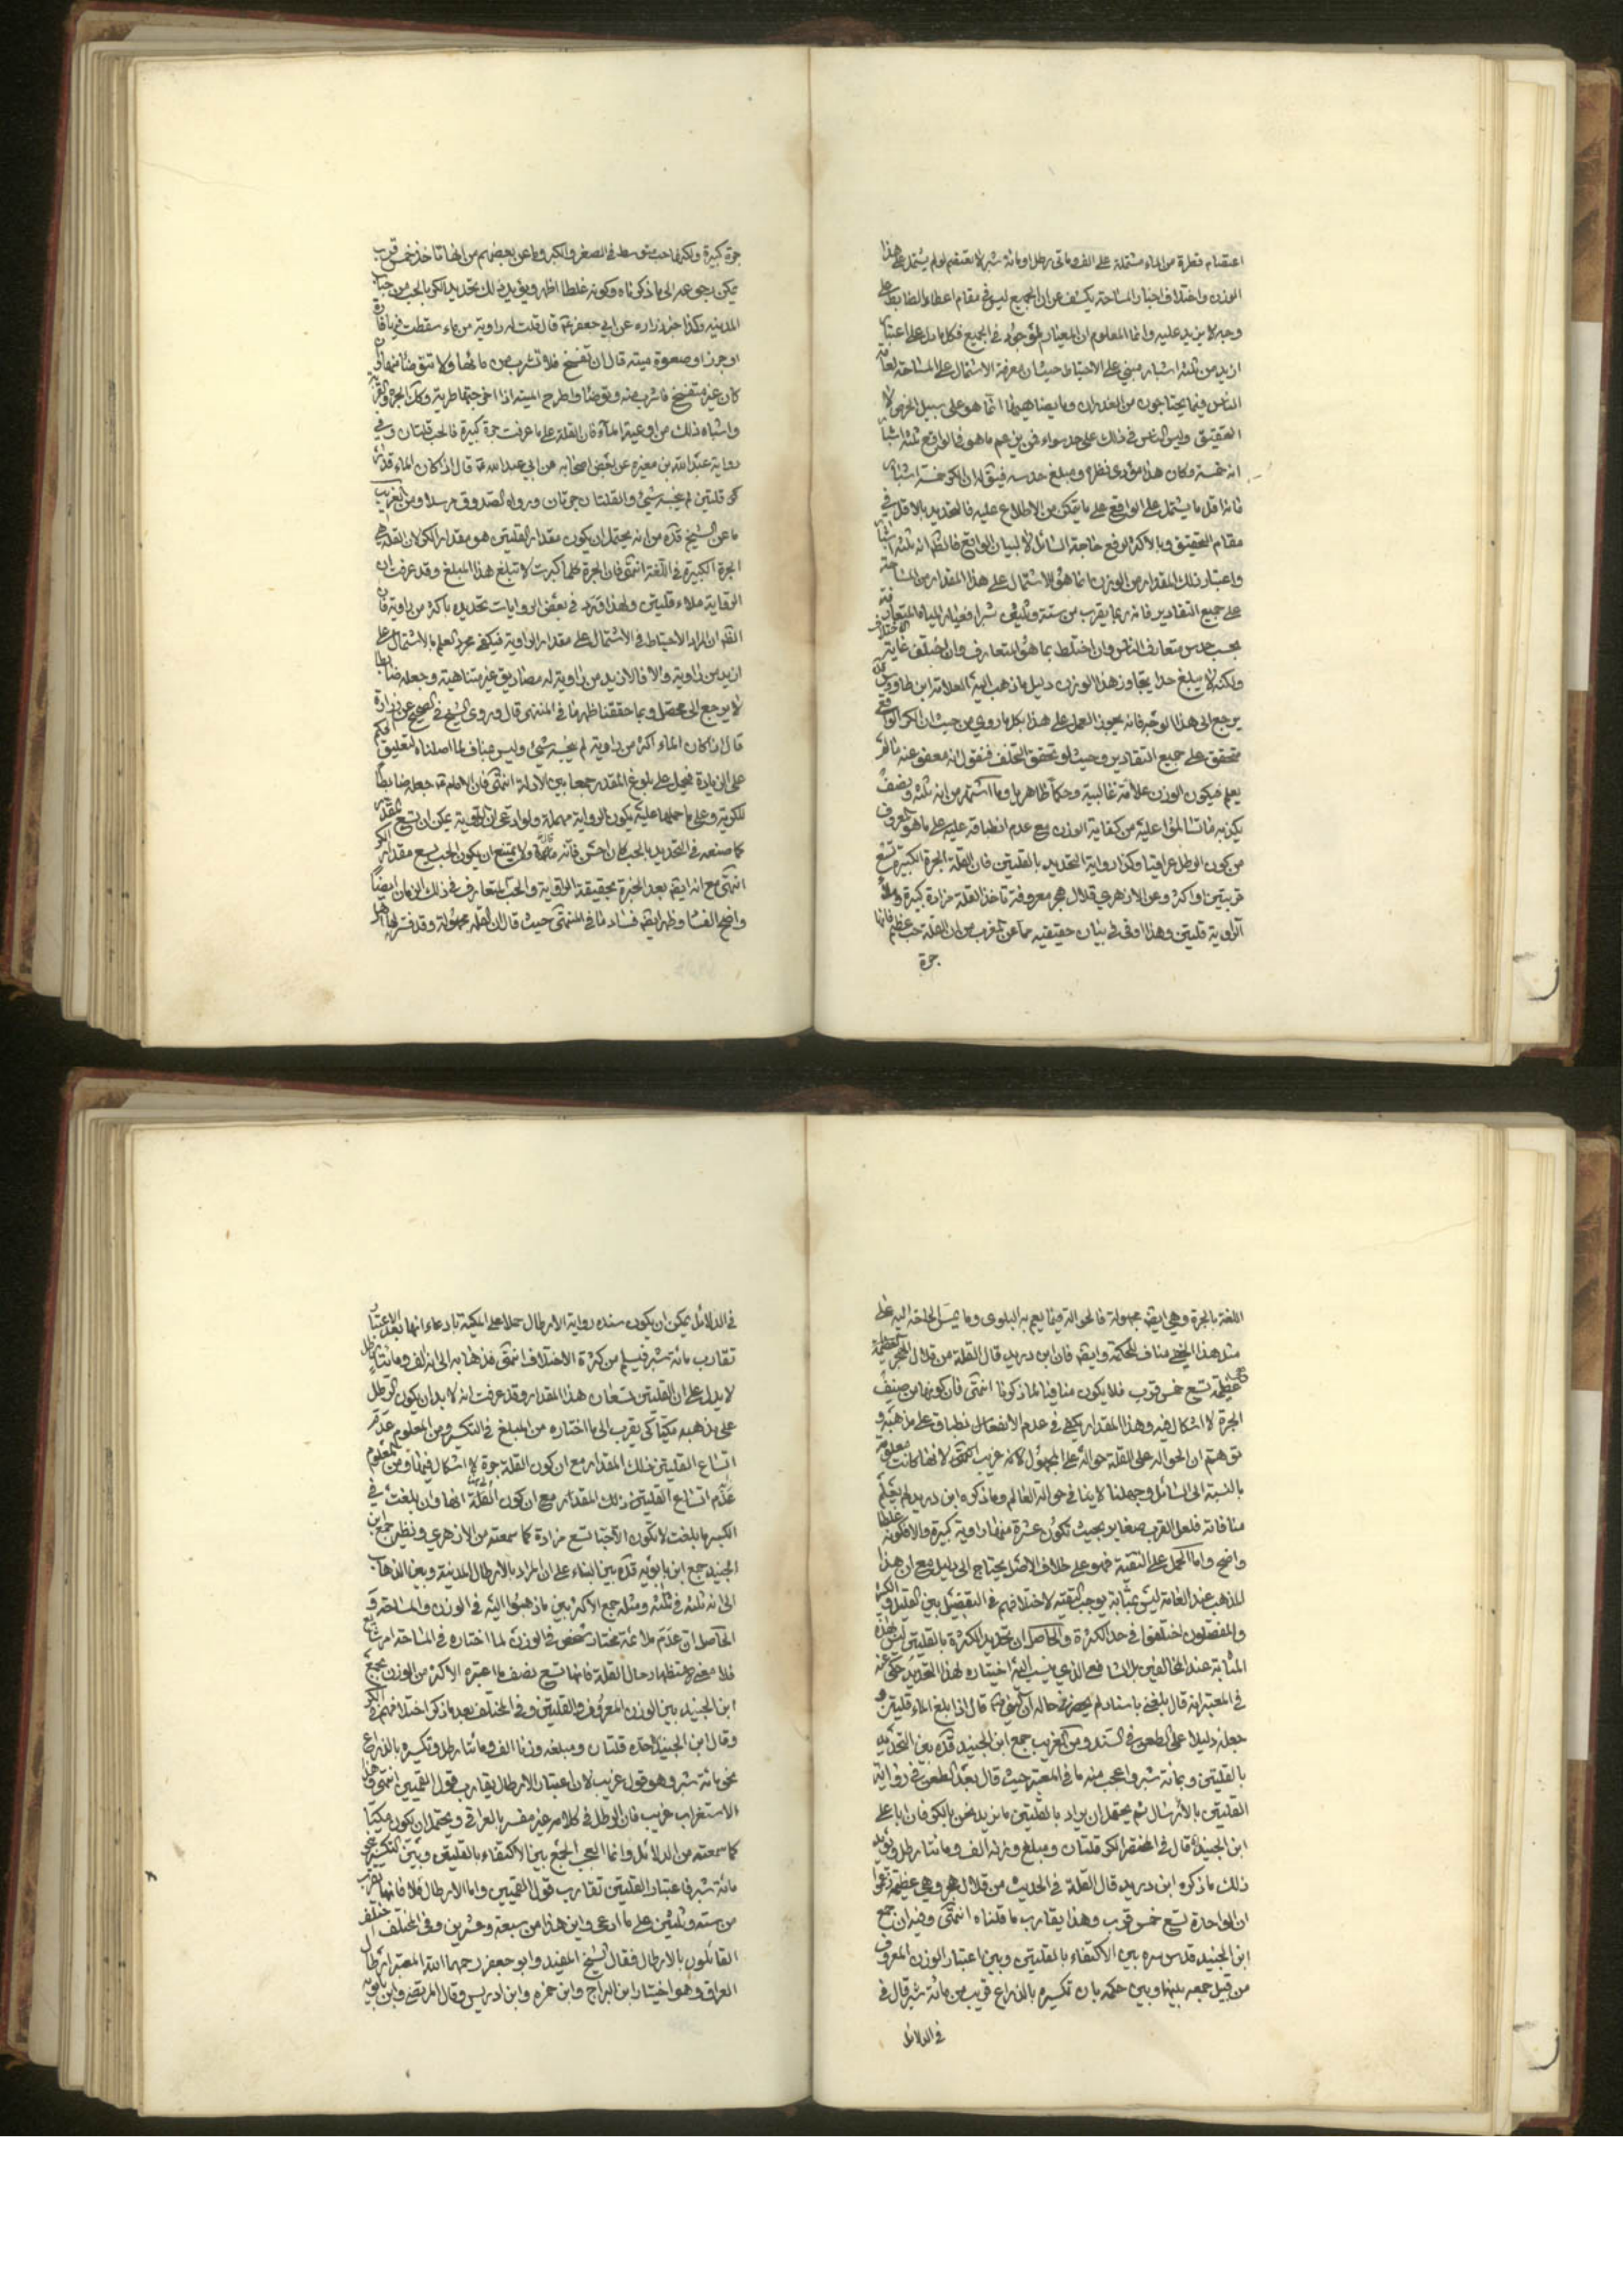 اعتصام قطرة من الماء مشتملة على الف ومأتى رطل او مائة شبر لا يعتصم لو لم يشتمل على هذا
الوزن واختلاف اخبار المساحة يكشف عن ان الجميع ليس في مقام اعطاء الضابط على
وجه لا يزيد عليه وانما المعلوم ان المعيار موجود في الجميع فكل ما دل على اعتبار
ازيد من ثلثة اشبار مبني على الاحتياط حيث ان معرفة الاشتمال على المساحة لعامة
الناس فيما يحتاجون من الغدران وما يضاهيها انما هو على سبيل الخرص لا
التحقيق وليس الناس في ذلك على حد سواء فمن يزعم ما هو في الواقع ثلثة اشبار
انه خمسة وكان هذا مؤدى نظره ومبلغ حدسه فيق له ان الكر خمسة اشبار
فانه اقل ما يشتمل على الواقع على ما يتمكن من الاطلاع عليه فالتحديد بالاقل في
مقام التحقيق وبالاكثر لرفع حاجة السائل لا لبيان الواقع فالظ انه ثلثة اشبار
واعتبار ذلك المقدار من الوزن انما هو للاشتمال على هذا المقدار من المساحة
على جميع التقادير فانه ربما يقرب من ستة وثلثين شبرا فعيار المياه المتعارفة
بحسب حدس متعارف الناس وان اختلط بما هو المتعارف وان اختلف غايته الاختلاف
ولكنه لا يبلغ حدا يتجاوز هذا الوزن دليل ما ذهب اليه العلامة ابن طاووس
يرجع الى هذا الوجه فانه يجوز العمل على هذا بكل ما روي من حيث ان الكر الواقع
متحقق على جميع التقادير وحيث لو تحقق التخلف فنقول انه معفو عنه ما لم
يعلم فيكون الوزن علامة غالبية وحكما ظاهريا وما اشتهر من انه ثلثة ونصف
يكذبه ما تسالموا عليه من كفاية الوزن مع عدم انطباقه عليه على ما هو المعروف
من كون الرطل عراقيا وكذا رواية التحديد بالقلتين فان القلة الجرة الكبيرة تسع
قربتين او اكثر وعن الازهري قلال هجر معروفة تاخذ القلة مزادة كبيرة وتملأ
الراوية قلتين وهذا اوفى في بيان حقيقيه مما عن المغرب من ان القلة حب عظيم فانها
جرة
جرة كبيرة ولكنها حب متوسط في الصغر والكبر وما عن بعضهم من انها تاخذ خمس قرب
يمكن رجوعه الى ما ذكرناه وكونه غلطا اظهر ويؤيد ذلك تحديد الكر بالحب من حباب
المدينه وكذا خبر زراره عن ابي جعفر ع قال قلت له راوية من ماء سقطت فيها فارة
او جرذ او صعوة ميتة قال ان تفسخ فلا تشرب من مائها ولا تتوضأ منها وان
كان غير متفسخ فاشرب منه وتوضأ واطرح الميتة اذا اخرجتها طرية وكذلك الجرة والقربة
واشباه ذلك من اوعية الماء فان القلة على ما عرفت جرة كبيرة فالحب قلتان وفي
رواية عبد الله بن مغيره عن بعض اصحابه عن ابي عبد الله ع قال اذا كان الماء قدر
كر قلتين لم ينجسه شيئ والقلتان جرتان ورواه الصدوق مرسلا ومن الغريب
ما عن الشيخ قده من انه يحتمل ان يكون مقدار القلتين هو مقدار الكر لان القلة هي
الجرة الكبيرة في اللغة انتهى فان الجرة كلما كبرت لا تبلغ هذا المبلغ وقد عرفت ان
الروايته ملاء قلتين ولهذا ورد في بعض الروايات تحديده باكثر من راوية فان
الظ ان المراد الاحتياط في الاشتمال على مقدار الراوية فيكفي مجرد العلم بالاشتمال على
ازيد من راوية والا فالازيد من راوية له مصاديق غير متناهية وجعله ضابطا
لا يرجع الى محصل وبما حققنا ظهر ما في المنتهى قال وروى الشيخ في الصحيح عن زرارة
قال اذا كان الماء اكثر من راوية لم ينجسه شيئ وليس مناف لما اصلناه لتعليق الحكم
على الزيادة فيحمل على بلوغ المقدر جمعا بين الادلة انتهى فان الامام ع جعله ضابطا
للكرية وعلى ما حملها عليه يكون الرواية مهملة ولو ادعى ان الراوية يمكن ان تسع مقدر
كما صنعه في التحديد بالحب كان احسن فانه قال ولا يمتنع ان يكون الحب يسع مقدار الكر
انتهى مع انه ايضا بعد الخبرة بحقيقة الراوية والحب المتعارف في ذلك الزمان ايضا
واضح الفساد وظهر ايضا فساد ما في المنتهى حيث قال ان القلة مجهولة وقد فسرها اهل
اللغة بالجرة وهي ايضا مجهولة فالحوالة فيما يعم به البلوى وما يمس الحاجة اليه على
مثل هذا الخفي مناف للحكمة وايضا فان ابن دريد قال القلة من قلال الهجر العظيمة
عظيمة تسع خمس قرب فلا يكون منافيا لما ذكرنا انتهى فان كونها من صنيف
الجرة لا اشكال فيه وهذا المقدار يكفي في عدم الانفعال بطباق على مذهبه و
توهم ان الحواله على القلة حوالة على المجهول كانه غريب انتهى لانها كانت معلومة
بالنسبة الى السائل وجهلنا لا ينافي حوالة العالم وما ذكره ابن دريد لم يعلم
منافاته فلعل القرب صغار بحيث تكون عشرة منها راوية كبيرة والا فكونه غلطا
واضح واما الحمل على التقية فهو على خلاف الاصل يحتاج الى دليل مع ان هذا
المذهب عند العامة ليس بمثابة يوجب التقية لاختلافهم في التفصيل بين القليل والكثير
والمفصلون اختلفوا في حد الكثرة والحاصل ان تحديد الكثرة بالقلتين ليس بهذه
المثابة عند المخالفين بل الشافعي الذي ينسب اليه اختياره لهذا التحديد حكى عنه
في المعتبر انه قال بلغني باسناد لم يحضرني حاله ان النبي ص قال اذا بلغ الماء قلتين و
جعله دليلا على الطعن في السند ومن الغريب جمع ابن الجنيد قده بين التحديد
بالقلتين وبمائة شبر واعجب منه ما في المعتبر حيث قال بعد الطعن في رواية
القلتين بالارسال ثم يحتمل ان يراد بالقلتين ما نريد نحن بالكر فان ابا علي
ابن الجنيد قال في المختصر الكر قلتان ومبلغ وزنه الف ومائتا رطل ويؤيد
ذلك ما ذكره ابن دريد قال القلة في الحديث من قلال هجر وهي عظيمة زعموا
ان الواحدة تسع خمس قرب وهذا يقارب ما قلناه انتهى وفيه ان جمع
ابن الجنيد قدس سره بين الاكتفاء بالقلتين وبين اعتبار الوزن المعروف
من قبيل جمعه بينها وبين حكمه بان تكسيره بالذراع قريب من مائة شبر قال في
في الدلائل
في الدلائل يمكن ان يكون سنده رواية الارطال حملا على المكية بادعاء انها بعد الاعتبار
تقارب مائة شبر فيسلم من كثرة الاختلاف انتهى فذهابه الى انه الف ومائتا رطل
لا يدل على ان القلتين تسعان هذا المقدار وقد عرفت انه لا بد ان يكون الرطل
على مذهبه مكيا كي يقرب الى ما اختاره من المبلغ في التكسر ومن المعلوم عدم
اتساع القلتين ذلك المقدار مع ان كون القلة جرة لا اشكال فيها ومن المعلوم
عدم اتساع القلتين ذلك المقدار مع ان كون القلة انها وان بلغت في
الكبر ما بلغت لا تكون الا حبا تسع مزادة كما سمعته من الازهري ونظير جمع ابن
الجنيد جمع ابن بابويه قده بين البناء على ان المراد بالارطال المدينة وبين الذهاب
الى انه ثلثة في ثلثة ومثله جمع الاكثر بين ما ذهبوا اليه في الوزن والمساحة و
الحاصل ان عدم ملائمة مختار شخص في الوزن لما اختاره في المساحة امر شايع
فلا معنى لاستظهار حال القلة فانها تسع نصف ما اعتبره الاكثر من الوزن بجمع
ابن الجنيد بين الوزن المعروف والقلتين وفي المختلف بعد ما ذكر اختلافهم في الكر
وقال ابن الجنيد حده قلتان ومبلغه وزنا الف ومائتا رطل وتكسيره بالذراع
نحو مائة شبر وهو قول غريب لان اعتبار الارطال يقارب قول القميين انتهى وهذا
الاستغراب غريب فان الرطل في كلامه غير مفسر بالعراقي ويحتمل ان يكون مكيا
كما سمعته من الدلائل وانما العجب الجمع بين الاكتفاء بالقلتين وبين التكسير نحو
مائة شبر فاعتبار القلتين تقارب قول القميين واما الارطال فلا فانها تقرب
من ستة وثلثين على ما ادعى واين هذا من سبعة وعشرين وفي المختلف اختلف
القائلون بالارطال فقال الشيخ المفيد وابو جعفر رحمهما الله المعتبر ارطال
العراق وهو اختيار ابن البراج وابن حمزه وابن ادريس وقال المرتضى وابن بابويه